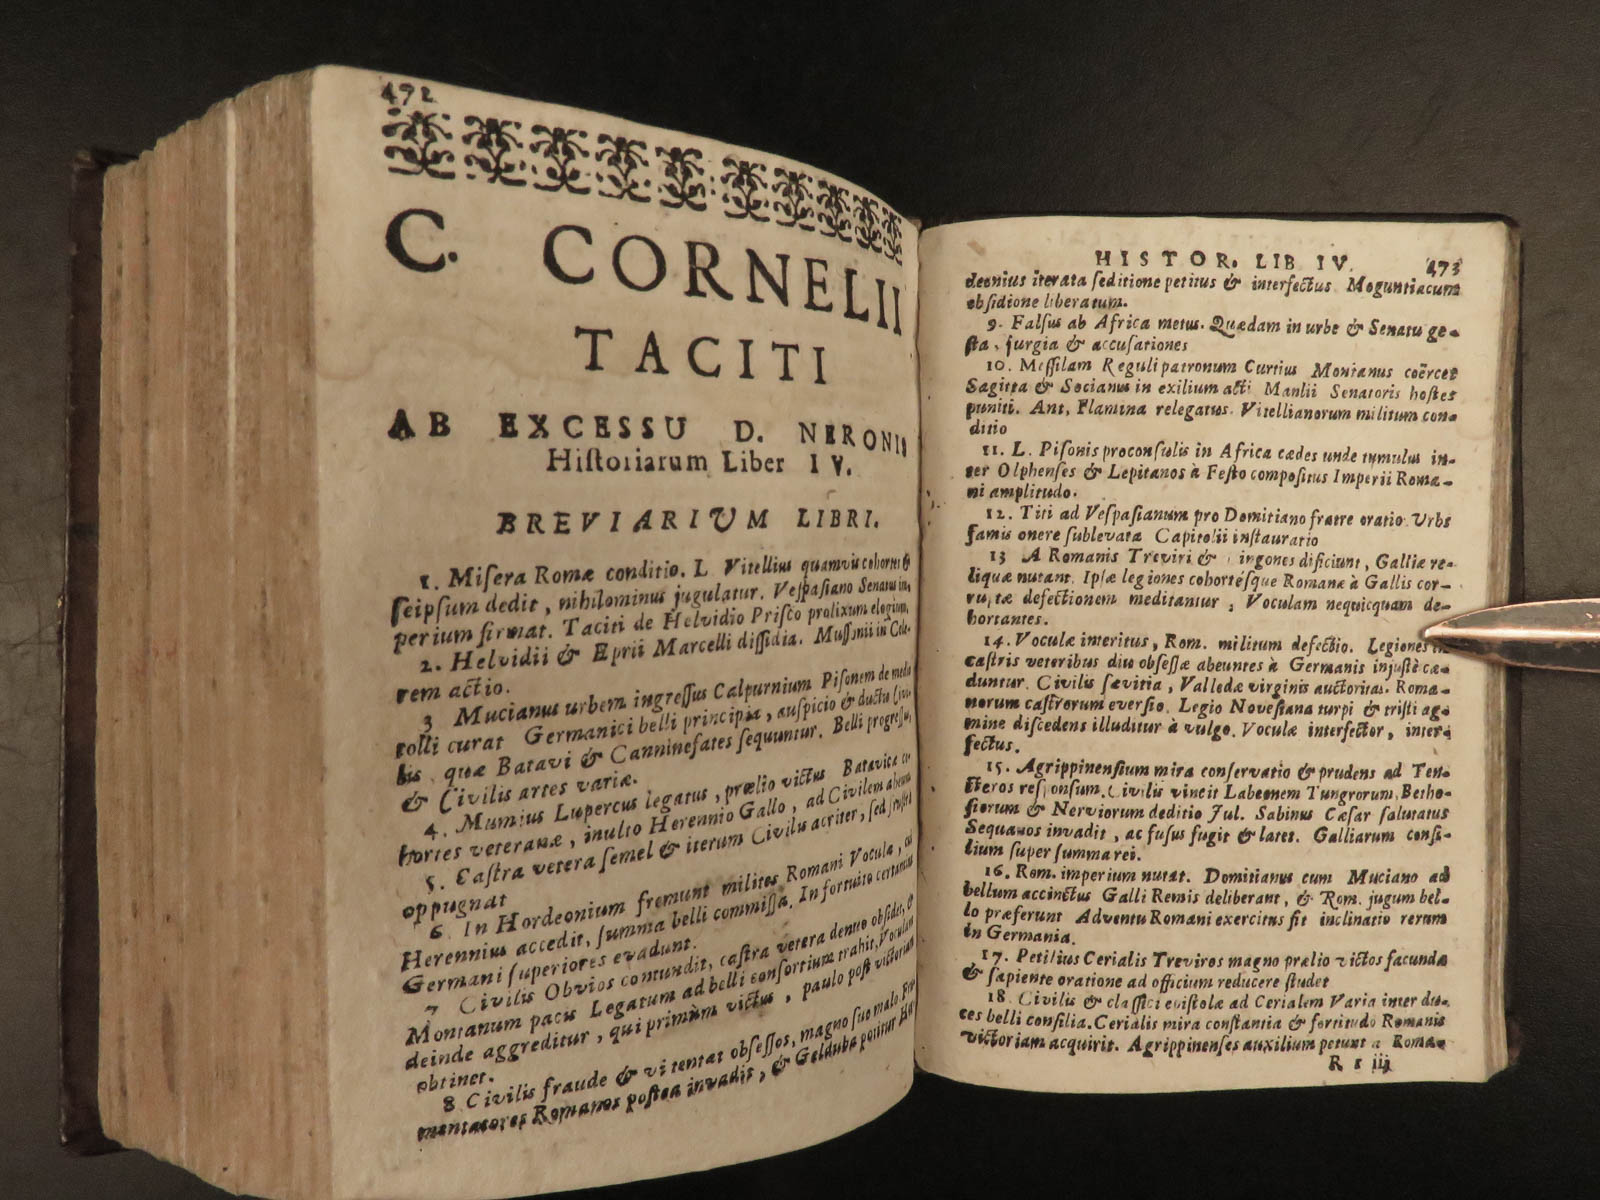 472
C. CORNELII
TACITI
AB EXCESSU D. NERONIS
Hiſtoriarum Liber IV.
BREVIARIUM LIBRI.
1. Miſera Romæ conditio. L Vitellius quamvis cohortes &
ſeipſum dedit, nihilominus jugulatur. Veſpaſiano Senatus im,
perium firmat. Taciti de Helvidio Priſco prolixum elogium,
2. Helvidii & Eprii Marcelli diſſidia. Muſſonii in Cele-
rem actio.
3 Mucianus urbem ingreſſus Calpurnium Piſonem de medio
tolli curat Germanici belli principia, auſpicio & ductu Civi-
lis quæ Batavi & Canninefates ſequuntur. Belli progreſſus,
& Civilis artes variæ.
4. Mumius Lupercus legatus, prælio victus Batavicæ co
hortes veteranæ, inulto Herennio Gallo, ad Civilem abeunt
5. Caſtra vetera ſemel & iterum Civilis acriter, ſed fruſtra
oppugnat
6. In Hordeonium fremunt milites Romani Voculæ, cui
Herennius accedit, ſumma belli commiſſa. In fortuito certamine
Germani ſuperiores evadunt.
7 Civilis Obvios contundit, caſtra vetera denuo obſidet, &
Montanum pacis Legatum ad belli conſortium trahit, Voculam
deinde aggreditur, qui primùm victus, paulo poſt victoriam
obtinet.
8 Civilis fraude & vi tentat obſeſſos, magno ſuo malo. Fru
mentatores Romanos poſtea invadit, & Gelduba potitur Hor
HISTOR. LIB IV. 473
deonius iterata ſeditione petitus & interfectus Moguntiacum
obſidione liberatum.
9. Falſus ab Africa metus. Quædam in urbe & Senatu ge-
ſta, jurgia & accuſationes
10. Meſſilam Reguli patronum Curtius Montanus coërcet
Sagitta & Socianus in exilium acti Manlii Senatoris hoſtes
puniti. Ant, Flamina relegatus. Vitellianorum militum con-
ditio
11. L. Piſonis proconſulis in Africa cædes unde tumulus in-
ter Olphenſes & Lepitanos à Feſto compoſitus Imperii Roma-
ni amplitudo.
12. Titi ad Veſpaſianum pro Domitiano fratre oratio Urbs
famis onere ſublevata Capitolii inſtauratio
13 A Romanis Treviri & ingones deficiunt, Galliæ re-
liquæ nutant. Ipſæ legiones cohorteſque Romanæ à Gallis cor-
ruptæ defectionem meditantur, Voculam nequicquam de-
hortantes.
14. Voculæ interitus, Rom. militum defectio. Legiones in
caſtris veteribus diu obſeſſæ abeuntes à Germanis injuſtè cæ-
duntur. Civilis ſævitia, Valledæ virginis auctoritas. Roma-
norum caſtrorum everſio. Legio Noveſiana turpi & triſti ag-
mine diſcedens illuditur à vulgo. Voculæ interfector, inter-
fectus.
15. Agrippinenſium mira conſervatio & prudens ad Ten-
cteros reſponſum. Civilis vincit Labeonem Tungrorum, Betho-
ſiorum & Nerviorum deditio Jul. Sabinus Cæſar ſalutatus
Sequanos invadit, ac fuſus fugit & latet. Galliarum conſi-
lium ſuper ſumma rei.
16. Rom. imperium nutat. Domitianus cum Muciano ad
bellum accinctus Galli Remis deliberant, & Rom. jugum bel-
lo præferunt Adventu Romani exercitus fit inclinatio rerum
in Germania.
17. Petilius Cerialis Treviros magno prælio victos facunda
& ſapiente oratione ad officium reducere ſtudet
18. Civilis & claſſici epiſtolæ ad Cerialem Varia inter du-
ces belli conſilia. Cerialis mira conſtantia & fortitudo Romanis
victoriam acquirit. Agrippinenſes auxilium petunt a Roma-
R r iiij